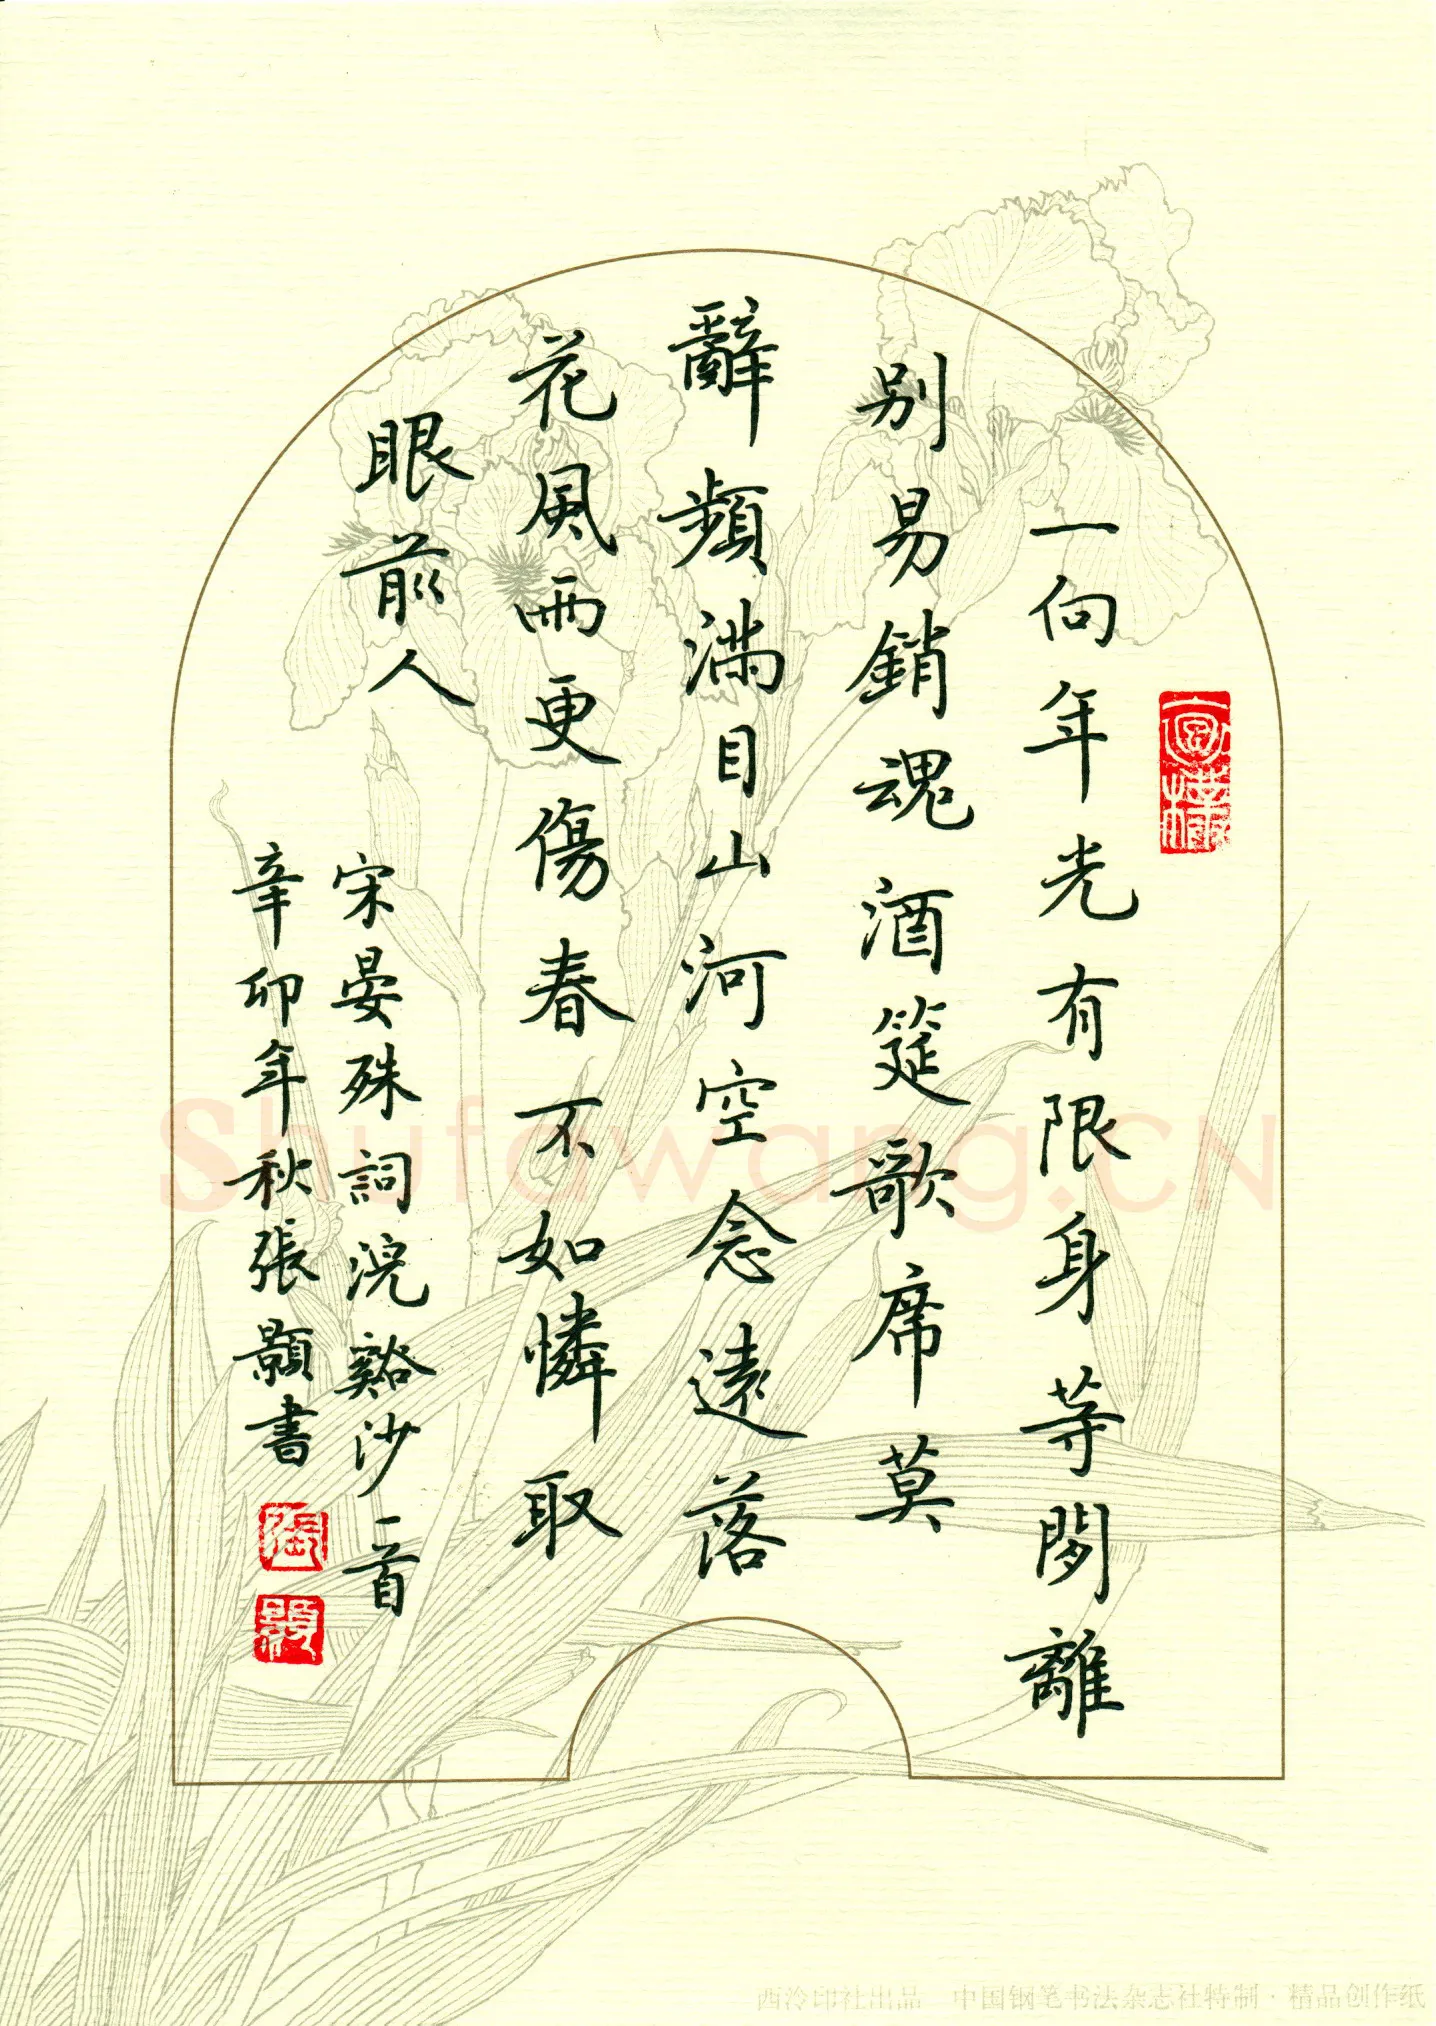 一向年光有限身等閑離
别易銷魂酒筵歌席莫
辭頻滿目山河空念遠落
花風雨更傷春不如憐取
眼前人
宋晏殊詞浣谿沙一首
辛卯年秋張顥書
Shufawang.CN
西泠印社出品 中国钢笔书法杂志社特制·精品创作纸